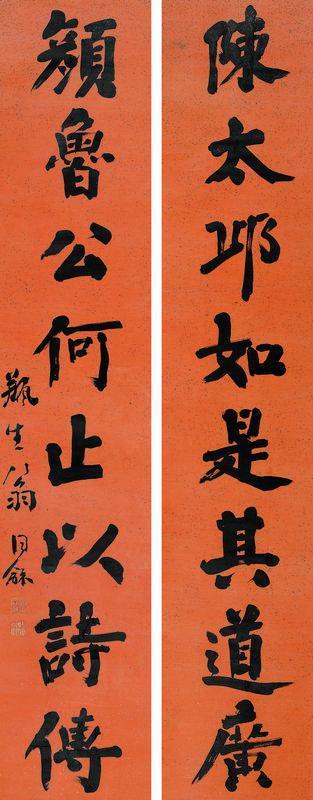 陳太邱如是其道廣
顏魯公何止以詩傳
瓶生翁同龢